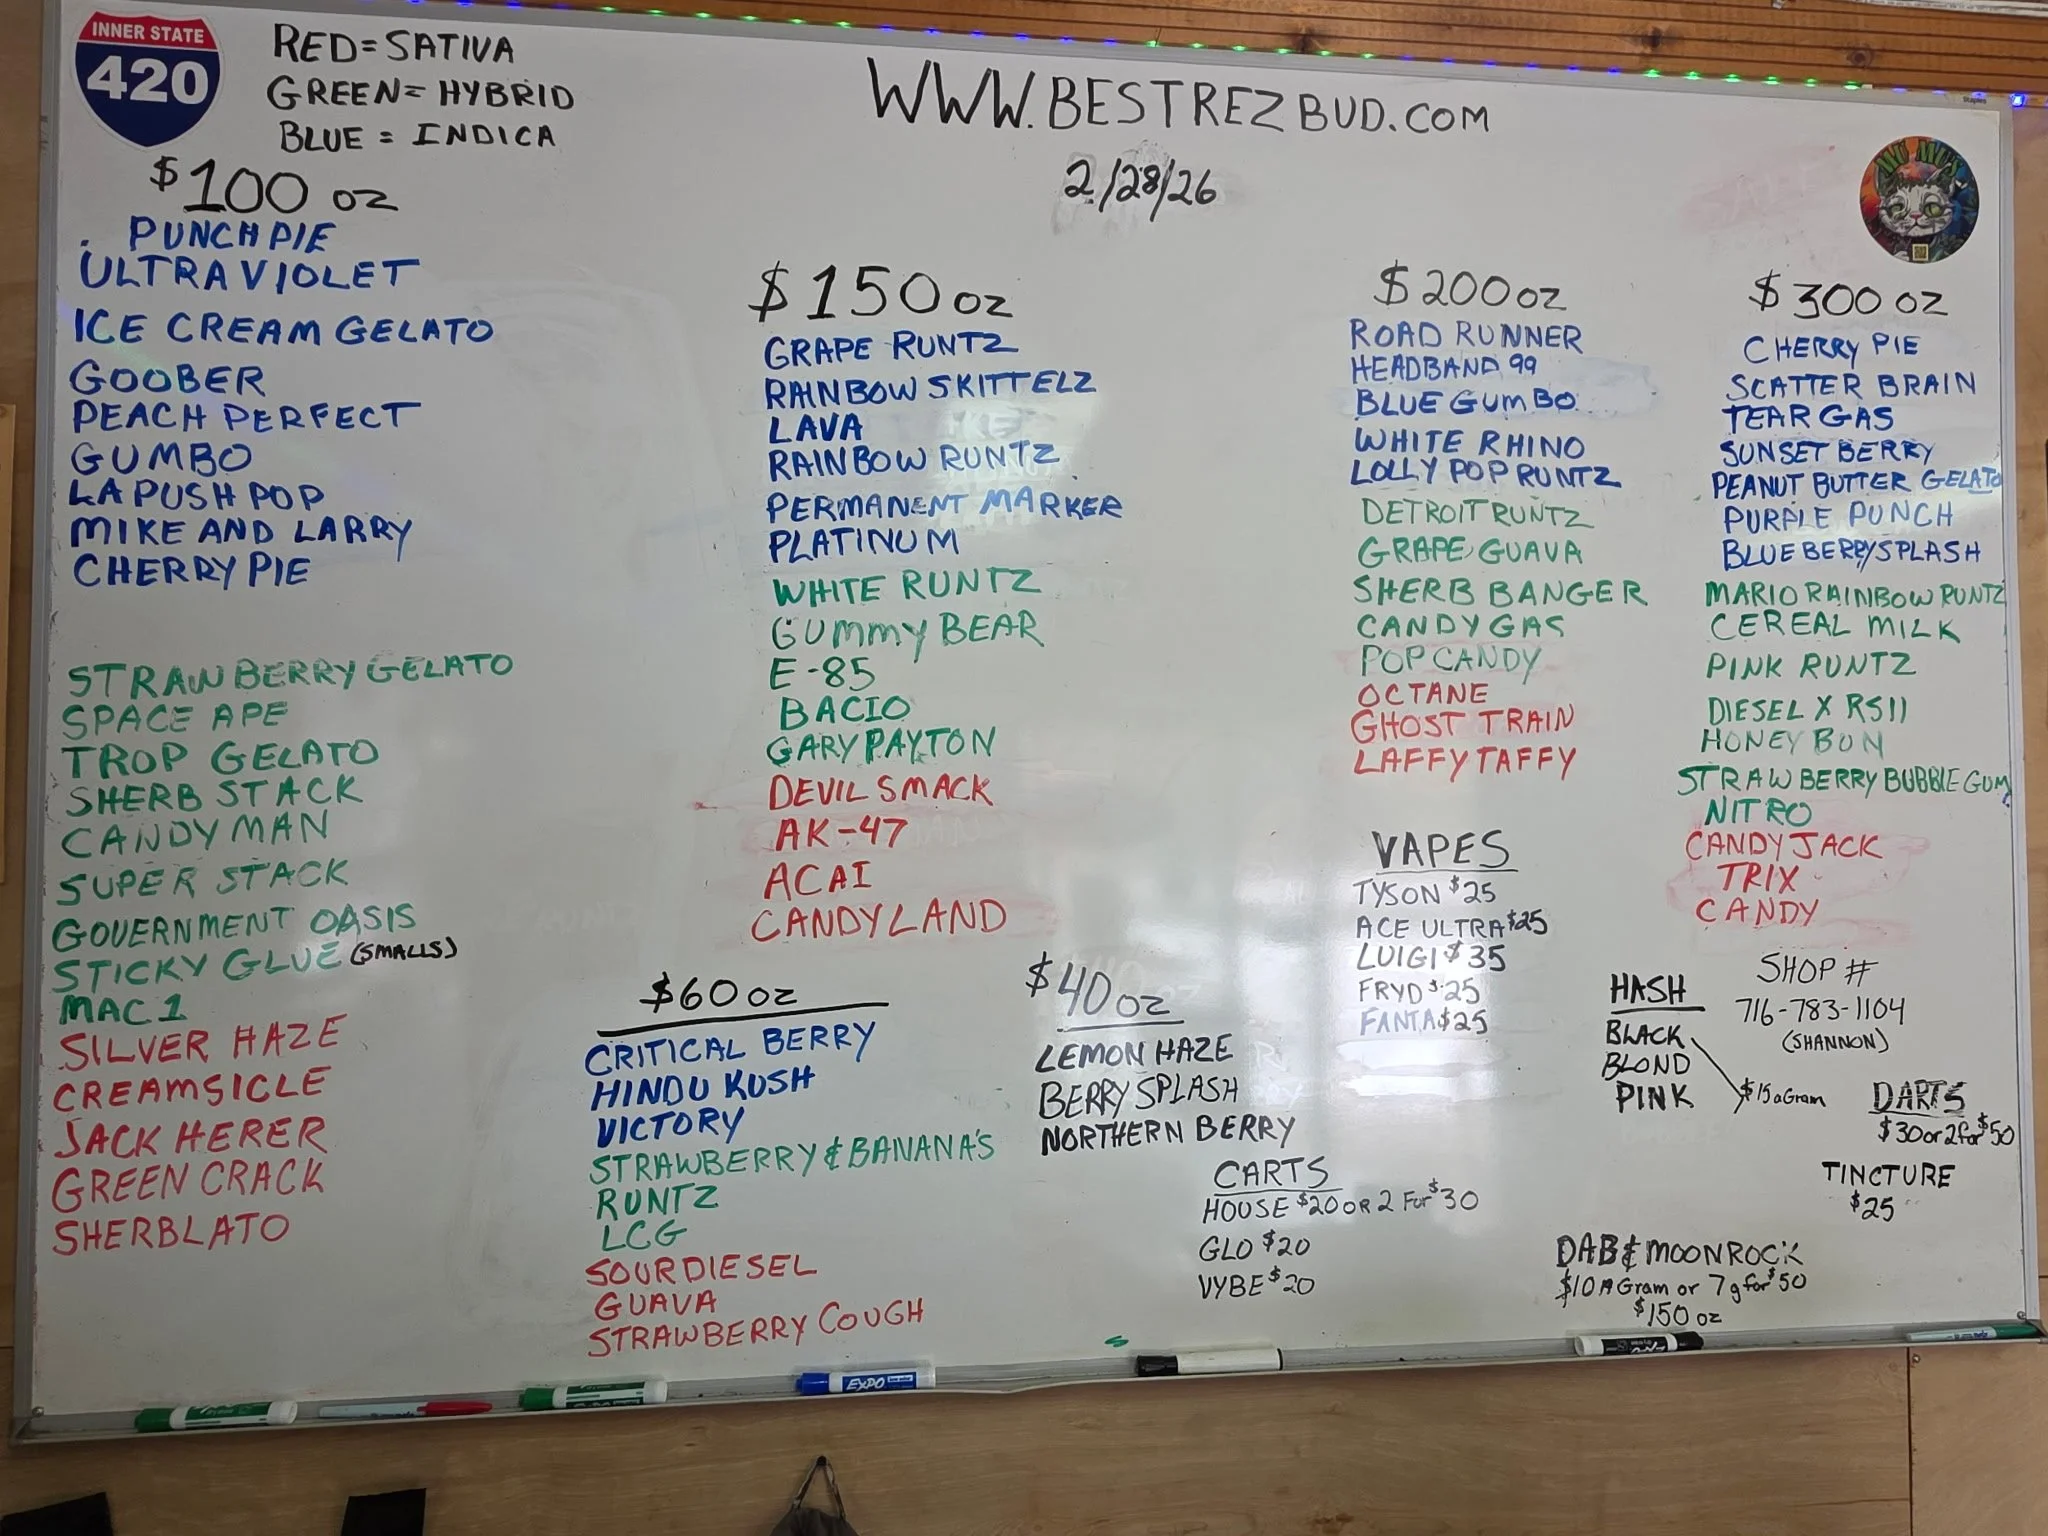 INNER STATE
420
RED = SATIVA
GREEN = HYBRID
BLUE = INDICA
WWW.BESTREZBUD.COM
2/28/26
MU MU'S
Staples
$100 OZ
PUNCH PIE
ULTRA VIOLET
ICE CREAM GELATO
GOOBER
PEACH PERFECT
GUMBO
LA PUSH POP
MIKE AND LARRY
CHERRY PIE
STRAWBERRY GELATO
SPACE APE
TROP GELATO
SHERB STACK
CANDY MAN
SUPER STACK
GOVERNMENT OASIS
STICKY GLUE (SMALLS)
MAC 1
SILVER HAZE
CREAMSICLE
JACK HERER
GREEN CRACK
SHERBLATO
$150 OZ
GRAPE RUNTZ
RAINBOW SKITTELZ
LAVA
RAINBOW RUNTZ
PERMANENT MARKER
PLATINUM
WHITE RUNTZ
GUMMY BEAR
E-85
BACIO
GARY PAYTON
DEVIL SMACK
AK-47
ACAI
CANDYLAND
$60 OZ
CRITICAL BERRY
HINDU KUSH
VICTORY
STRAWBERRY & BANANA'S
RUNTZ
LCG
SOUR DIESEL
GUAVA
STRAWBERRY COUGH
$40 OZ
LEMON HAZE
BERRY SPLASH
NORTHERN BERRY
CARTS
HOUSE $20 OR 2 FOR $30
GLO $20
VYBE $20
$200 OZ
ROAD RUNNER
HEADBAND 99
BLUE GUMBO
WHITE RHINO
LOLLY POP RUNTZ
DETROIT RUNTZ
GRAPE GUAVA
SHERB BANGER
CANDY GAS
POP CANDY
OCTANE
GHOST TRAIN
LAFFY TAFFY
VAPES
TYSON $25
ACE ULTRA $25
LUIGI $35
FRYD $25
FANTA $25
$300 OZ
CHERRY PIE
SCATTER BRAIN
TEAR GAS
SUNSET BERRY
PEANUT BUTTER GELATO
PURPLE PUNCH
BLUEBERRY SPLASH
MARIO RAINBOW RUNTZ
CEREAL MILK
PINK RUNTZ
DIESEL X RS11
HONEY BUN
STRAWBERRY BUBBLE GUM
NITRO
CANDY JACK
TRIX
CANDY
HASH
BLACK
BLOND
PINK
$15 a Gram
SHOP #
716-783-1104
(SHANNON)
DARTS
$30 or 2 for $50
TINCTURE
$25
DAB & MOONROCK
$10 A Gram or 7g for $50
$150 OZ
EXPO